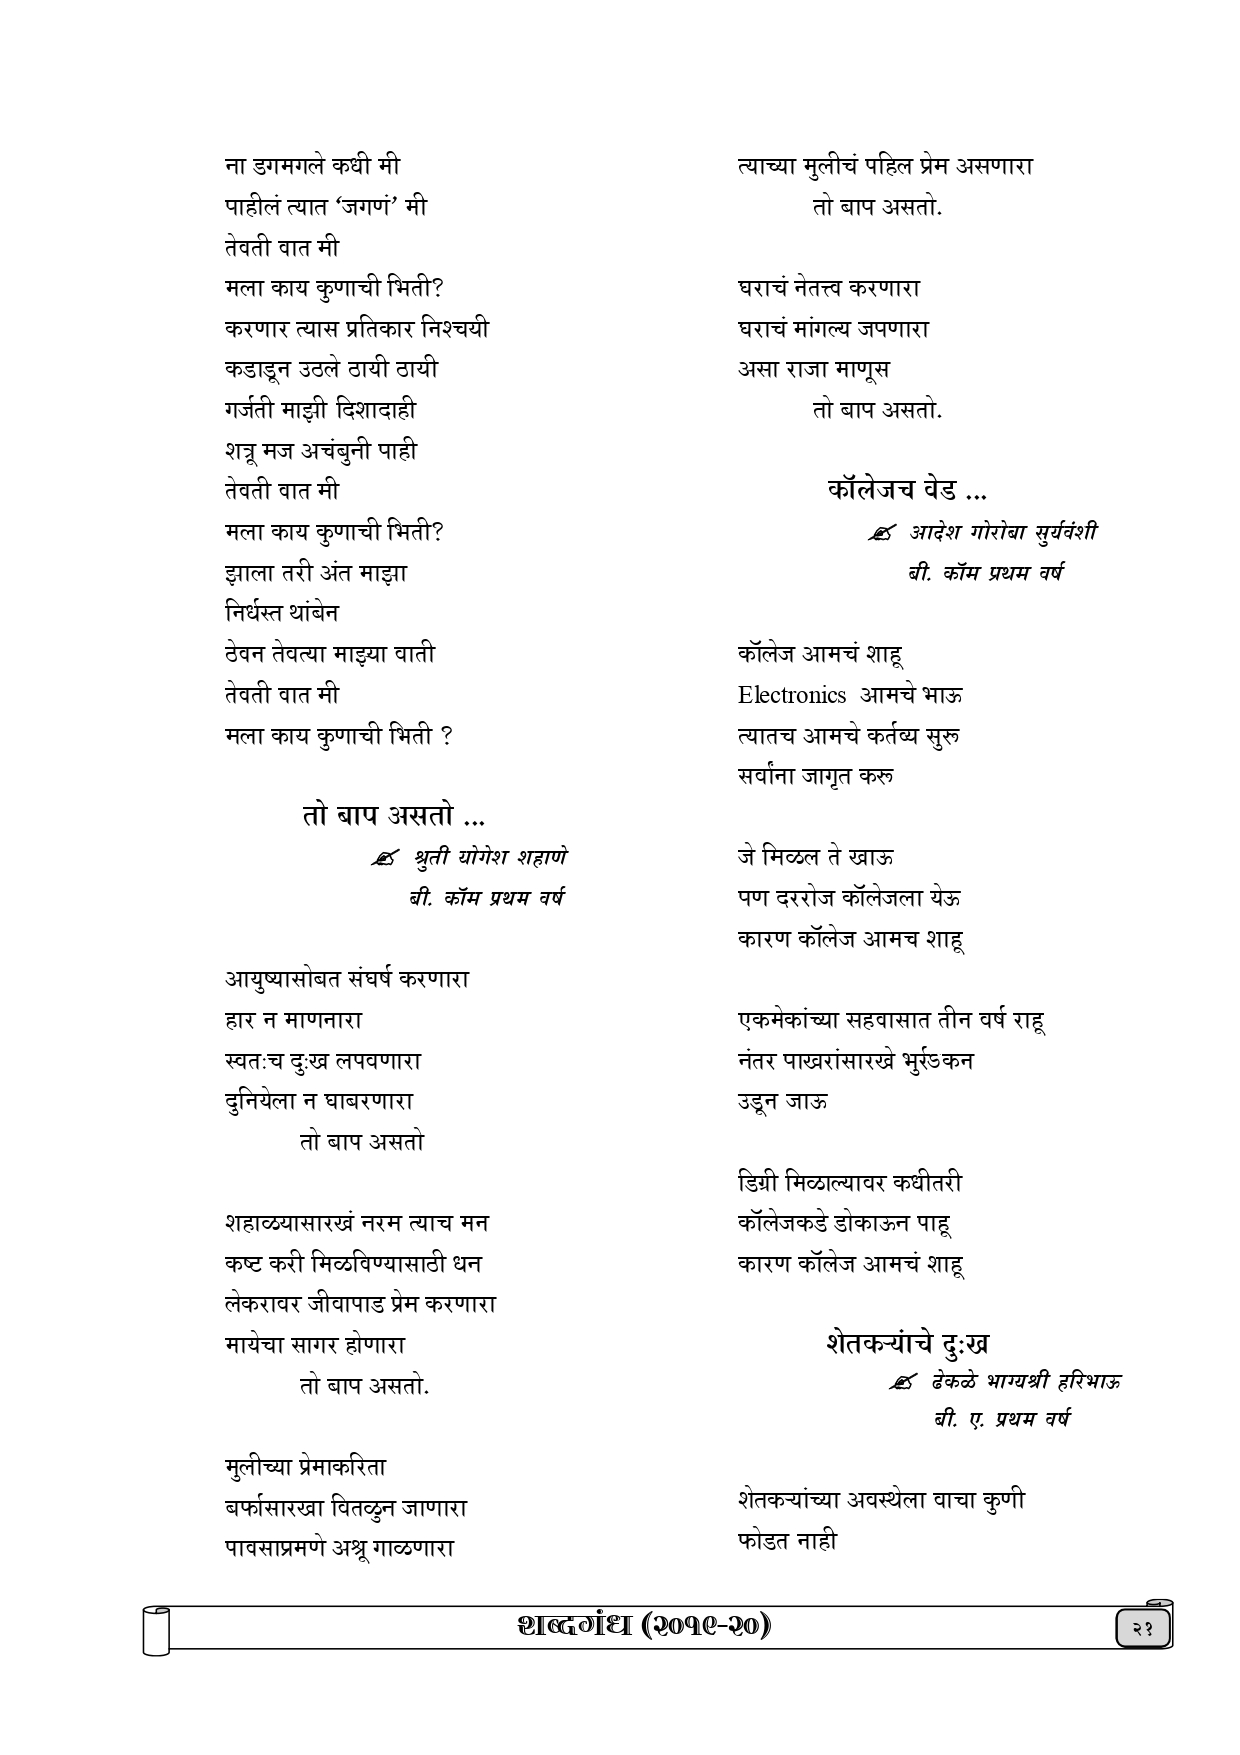 ना डगमगले कधी मी
पाहीलं त्यात ‘जगणं’ मी
तेवती वात मी
मला काय कुणाची भिती?
करणार त्यास प्रतिकार निश्चयी
कडाडून उठले ठायी ठायी
गर्जती माझी दिशादाही
शत्रू मज अचंबुनी पाही
तेवती वात मी
मला काय कुणाची भिती?
झाला तरी अंत माझा
निर्धस्त थांबेन
ठेवन तेवत्या माझ्या वाती
तेवती वात मी
मला काय कुणाची भिती ?
तो बाप असतो ...
श्रुती योगेश शहाणे
बी. कॉम प्रथम वर्ष
आयुष्यासोबत संघर्ष करणारा
हार न माणनारा
स्वतःच दुःख लपवणारा
दुनियेला न घाबरणारा
तो बाप असतो
शहाळयासारखं नरम त्याच मन
कष्ट करी मिळविण्यासाठी धन
लेकरावर जीवापाड प्रेम करणारा
मायेचा सागर होणारा
तो बाप असतो.
मुलीच्या प्रेमाकरिता
बर्फासारखा वितळुन जाणारा
पावसाप्रमणे अश्रू गाळणारा
त्याच्या मुलीचं पहिल प्रेम असणारा
तो बाप असतो.
घराचं नेतत्त्व करणारा
घराचं मांगल्य जपणारा
असा राजा माणूस
तो बाप असतो.
कॉलेजच वेड ...
आदेश गोरोबा सुर्यवंशी
बी. कॉम प्रथम वर्ष
कॉलेज आमचं शाहू
Electronics आमचे भाऊ
त्यातच आमचे कर्तव्य सुरू
सर्वांना जागृत करू
जे मिळल ते खाऊ
पण दररोज कॉलेजला येऊ
कारण कॉलेज आमच शाहू
एकमेकांच्या सहवासात तीन वर्ष राहू
नंतर पाखरांसारखे भुर्रऽकन
उडून जाऊ
डिग्री मिळाल्यावर कधीतरी
कॉलेजकडे डोकाऊन पाहू
कारण कॉलेज आमचं शाहू
शेतकऱ्यांचे दुःख
ढेकळे भाग्यश्री हरिभाऊ
बी. ए. प्रथम वर्ष
शेतकऱ्यांच्या अवस्थेला वाचा कुणी
फोडत नाही
शब्दगंध (२०१९-२०)
२१